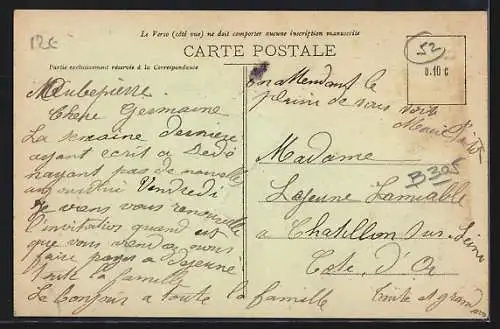 12€
Le Verso (côté vue) ne doit comporter aucune inscription manuscrite
CARTE POSTALE
Partie exclusivement réservée à la Correspondance
52
0.10 c
Aubepierre
Chere Germaine
La semaine derniere
ayant ecrit a Dedé
nayant pas de nouvelles
aujourdhui Vendredi
je vans vous renouvelle
l'invitation quand est
que vous viendra nous
faire
toute la famille
Le bonjour a toute la famille
en attendant le
plaisir de vous voir
B305
Madame
Lajeune Lamiable
a Chatillon sur Seine
Cote d'Or